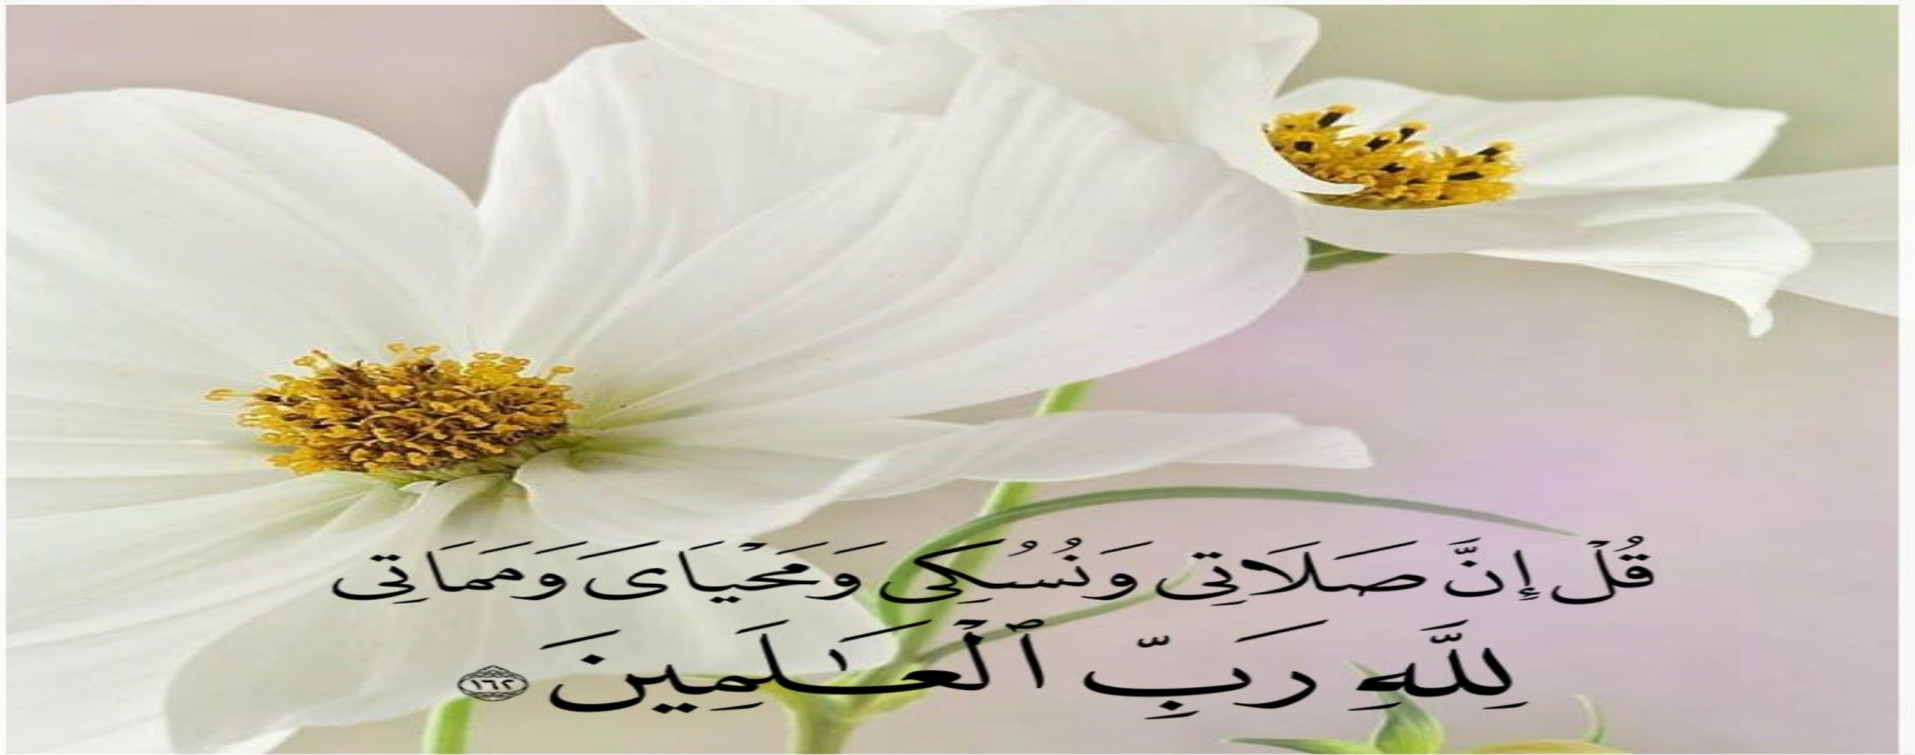 قُلْ إِنَّ صَلَاتِى وَنُسُكِى وَمَحْيَاىَ وَمَمَاتِى
لِلَّهِ رَبِّ ٱلْعَـٰلَمِينَ ١٦٢